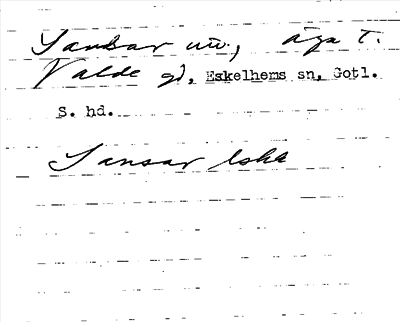 Sandar nu., äga t.
Valde gd, Eskelhems sn, Gotl.
S. hd.
Sansar